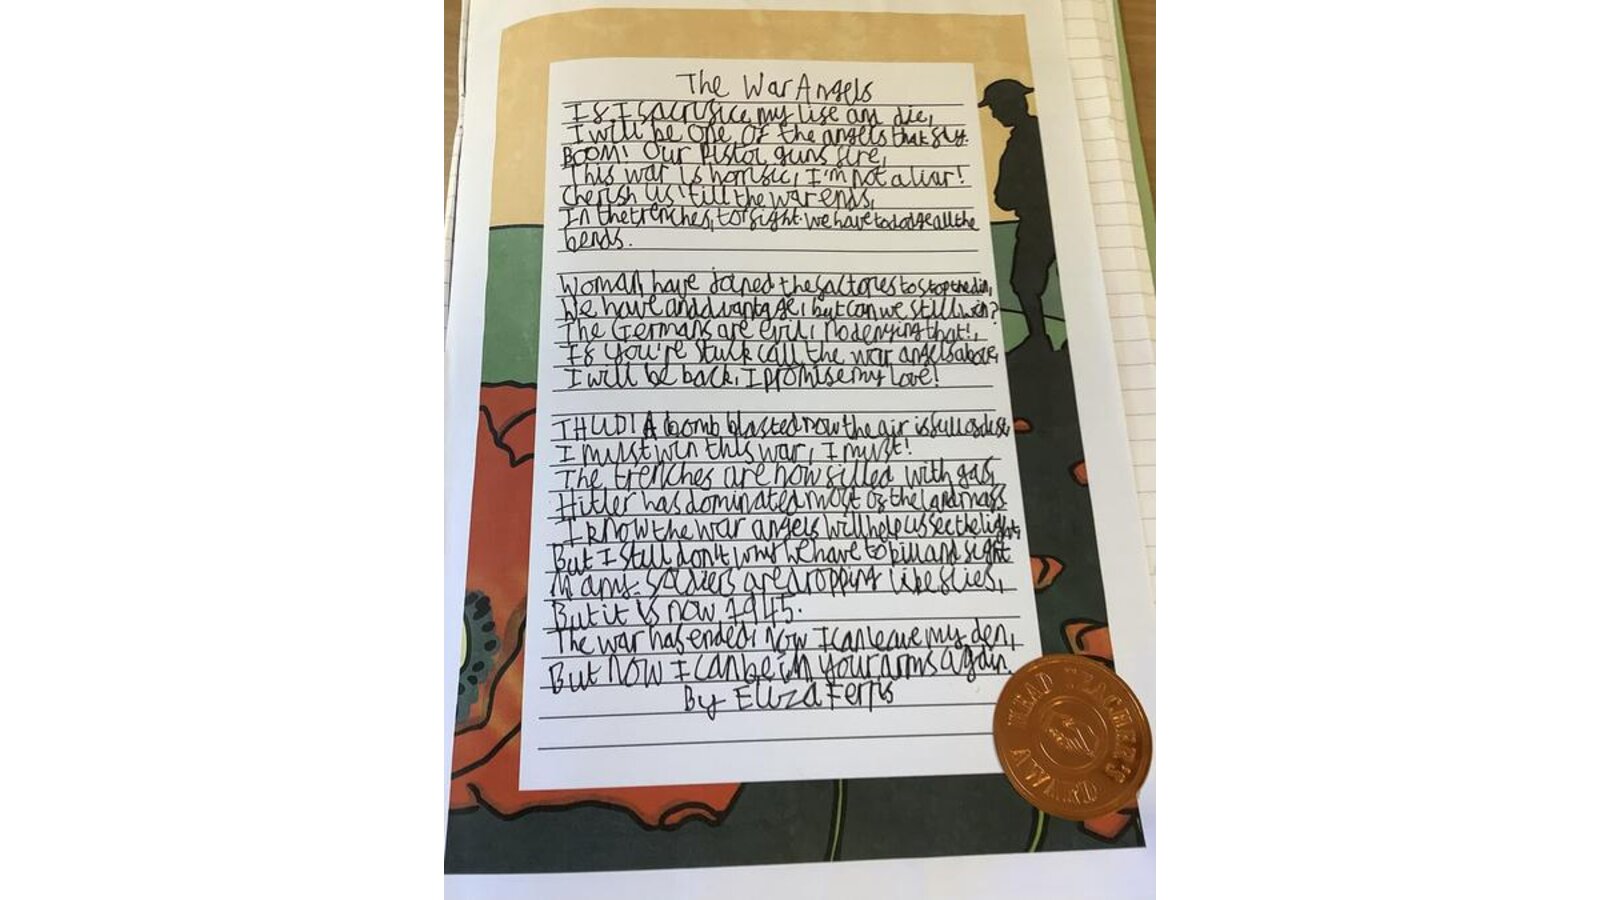 The War Angels
If I sacrifice my life and die,
I will be one of the angels that fly.
BOOM! Our pistol guns fire,
This war is horrific, I'm not a liar!
Cherish us 'till the war ends,
In the trenches, to fight. we have to dodge all the
bends.
Woman have joined the factories to stop the din,
We have and advantage, but can we still win?
The Germans are evil, no denying that!,
If you're stuck call the war angels above,
I will be back, I promise my love!
THUD! A bomb blasted now the air is full of dust
I must win this war, I must!
The trenches are now filled with gas,
Hitler has dominated most of the land mass
I know the war angels will help us see the light,
But I still don't why we have to kill and fight
Many soldiers are dropping like flies,
But it is now 1945.
The war has ended, now I can leave my den,
But now I can be in your arms again.
By Eliza Ferris
HEAD TEACHERS
AWARD